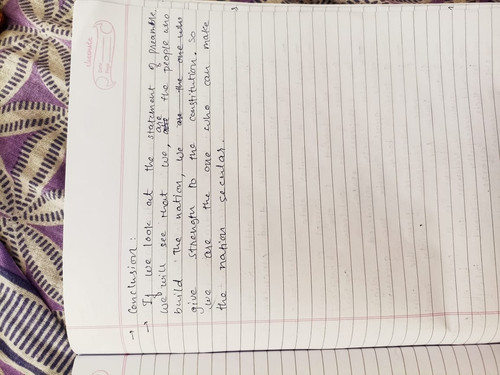 → Conclusion :
→ If we look out the statement of preamble
we will see that we, are the people who
build the nation, we are the one who
give strength to the constitution. So
we are the one who can make
the nation secular.